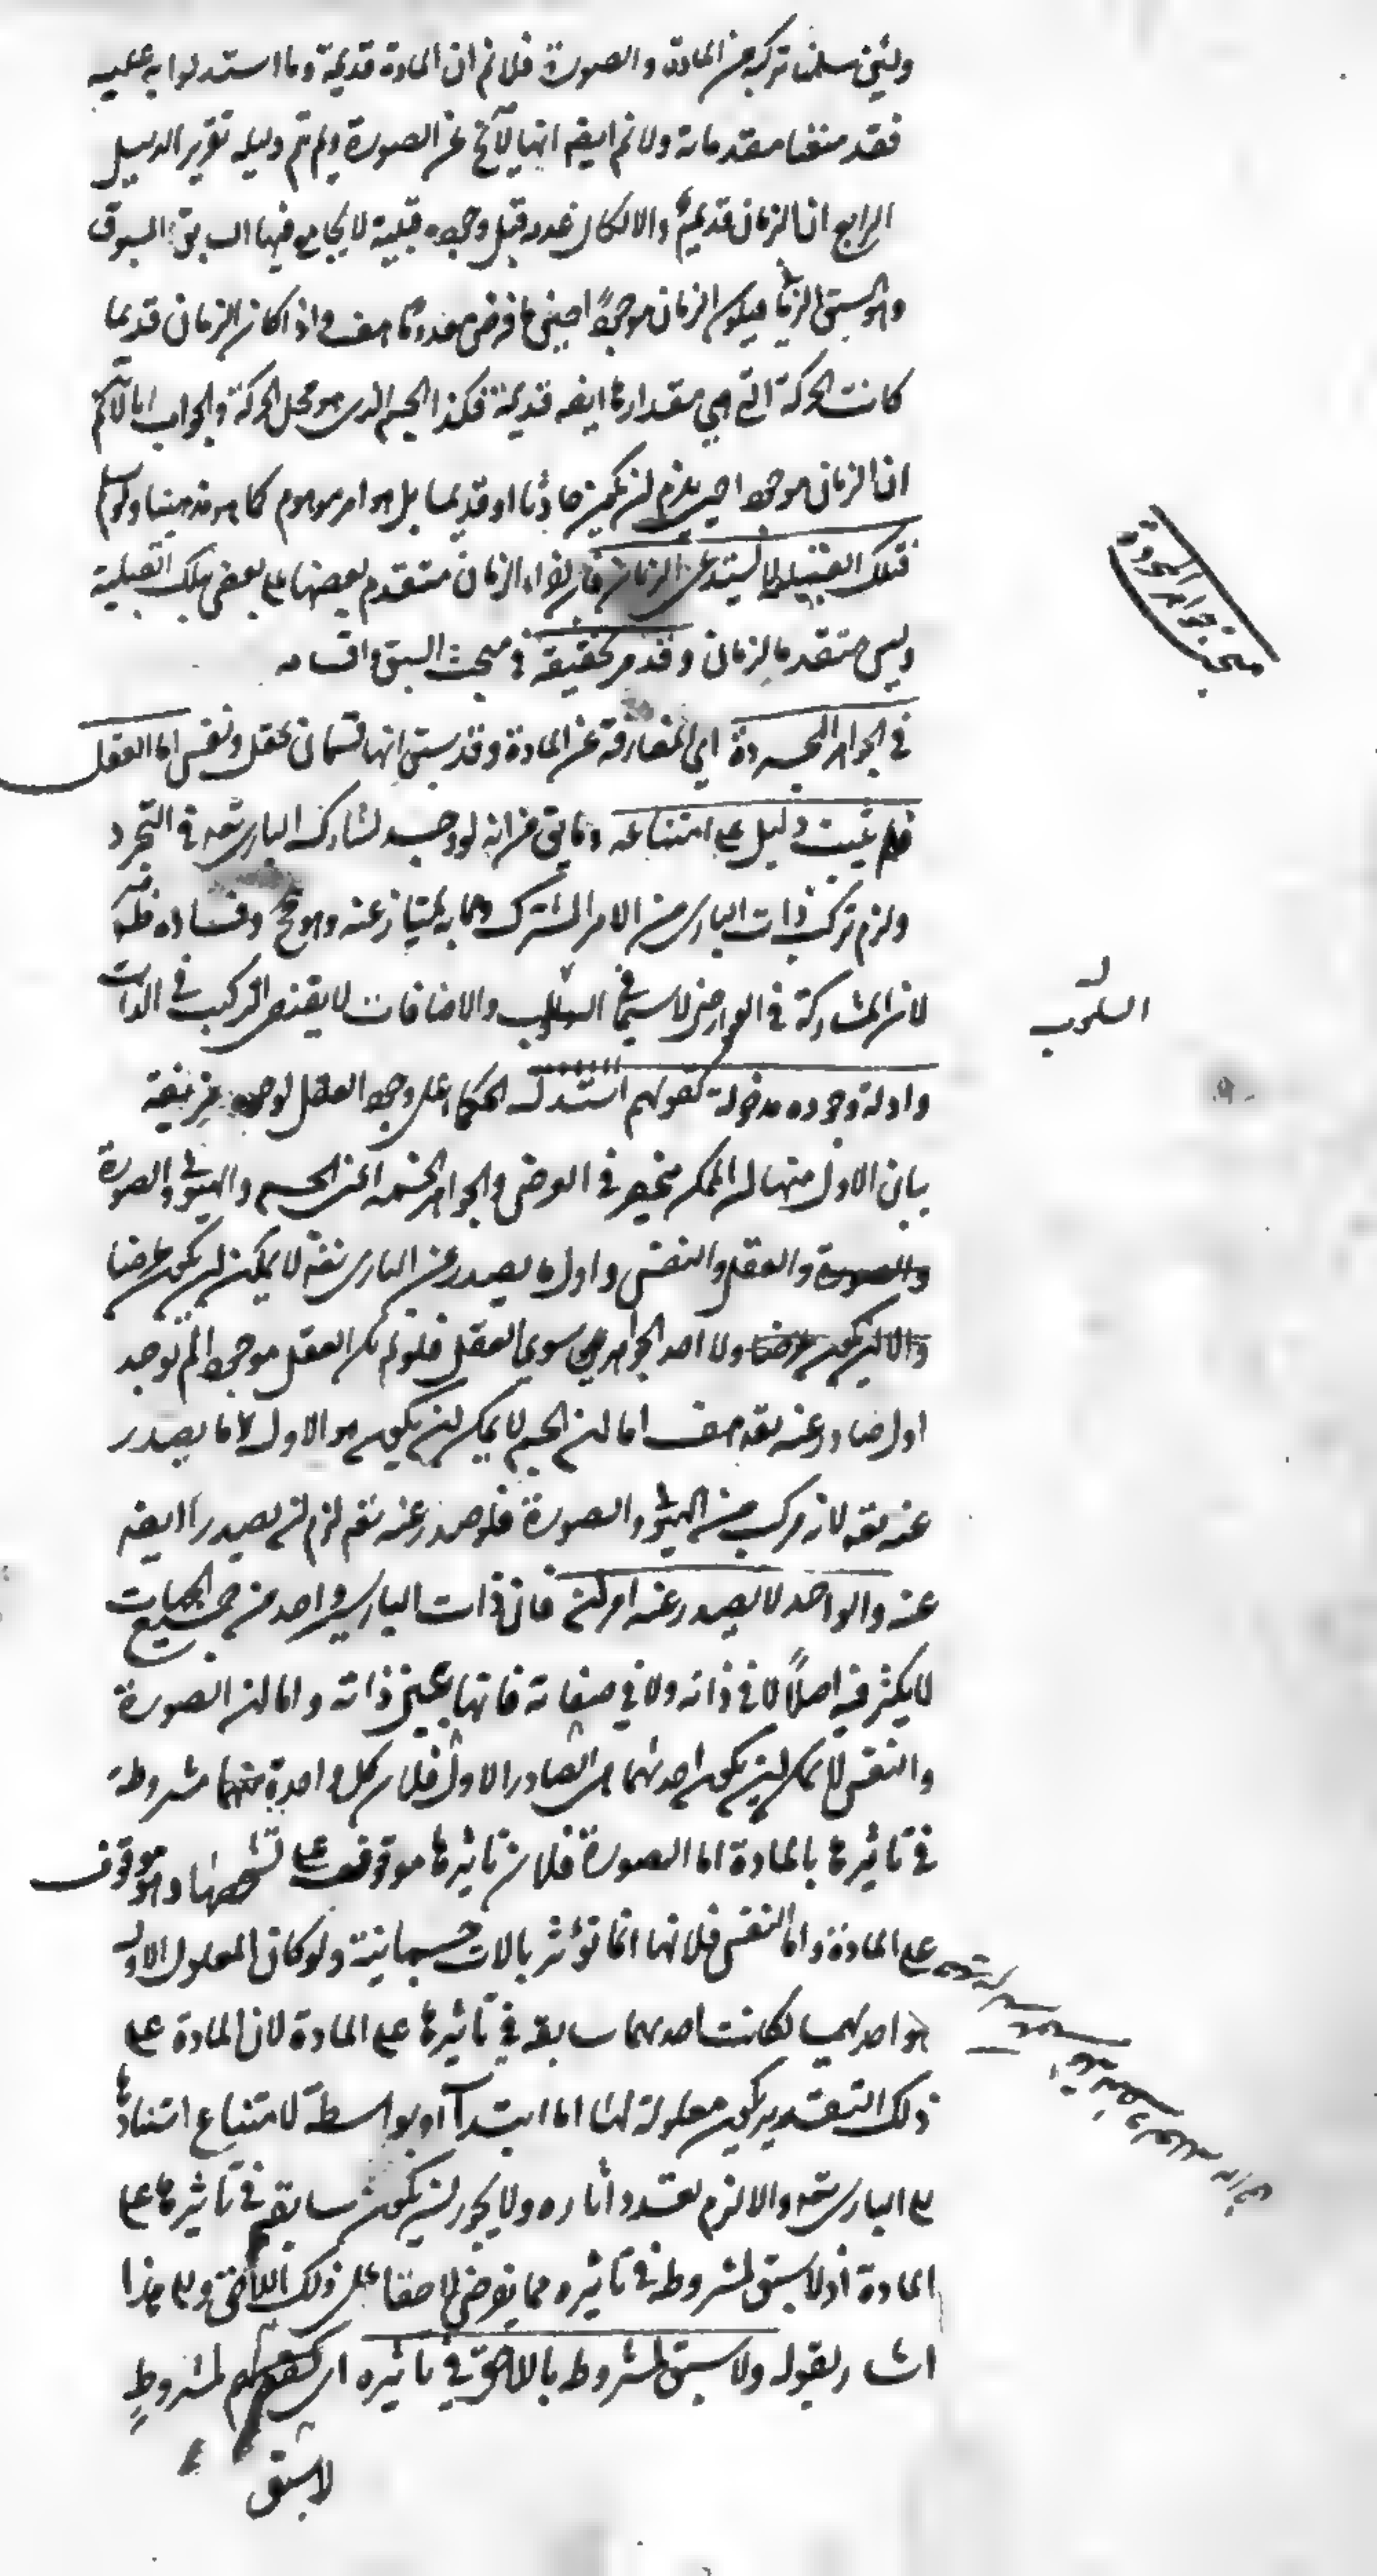 ولئن سلمنا تركبه من المادة والصورة فلا نم ان المادة قديمة وما استدلوا به عليه
فقد منعنا مقدماته ولا نم ايضه انها لا تخ عن الصورة ولم تم دليله تقرير الدليل
الرابع ان الزمان قديم والا لكان عدمه قبل وجوده قبلية لا يجامع فيها السابق المسبوق
وهو السبق الزماني فيكون الزمان موجودًا حين ما فرض معدوما هف واذا كان الزمان قديما
كانت الحركة التي هي مقدارها ايضه قديمة فكذا الجسم الذي هو محل الحركة والجواب انا لا نم
ان الزمان موجود حتى يلزم ان يكون حادثا او قديما بل هو امر موهوم كما هو مذهبنا ولو سلم
فتلك القبلية لا تستدعي الزمان فان اجزاء الزمان متقدم بعضها على بعض بتلك القبلية
وليس متقدما بالزمان وقد مر تحقيقه في مبحث السبق واقسامه
في الجواهر المجردة اي المفارقة عن المادة وقد سبق انها قسمان عقل ونفس اما العقل
فلم يثبت دليل على امتناعه وما يق من انه لو وجد لشارك الباري تعه في التجرد
ولزم تركب ذات الباري من الامر المشترك وما به يمتاز عنه وهو مح وفساده ظ
لان المشاركة في العوارض لا سيما في السلوب والاضافات لا يقتضي التركيب في الذات
وادلة وجوده مدخولة كقولهم استدل الحكماء على وجود العقل لوجوه مزيفة
بيان الاول منها ان الممكن منحصر في العرض والجواهر الخمسة اعني الجسم والهيولى والصورة
والصورة والعقل والنفس واول ما يصدر عن الباري تعه لا يمكن ان يكون عرضا
والا ان يكون عرضا ولا احد الجواهر سوى العقل فلو لم يكن العقل موجودا لم يوجد
اول صادر عنه تعه هف اما ان الجسم لا يمكن ان يكون هو الاول ما يصدر
عنه تعه لانه مركب من الهيولى والصورة فلو صدر عنه تعه لزم ان يصدرا ايضه
عنه والواحد لا يصدر عنه امران فان ذات الباري واحد من جميع الجهات
لا يكثر فيه اصلًا لا في ذاته ولا في صفاته فانها عين ذاته واما ان الصورة
والنفس لا يمكن ان يكون احدهما هي الصادر الاول فلان كل واحدة منهما مشروطة
في تاثيرها بالمادة اما الصورة فلان تاثيرها موقوف على تشخصها وهو موقوف
على المادة واما النفس فلانها انما تؤثر بالات جسمانية ولو كان المعلول الاول
هو احديهما لكانت احديهما سابقة في تاثيرها على المادة لان المادة على
ذلك التقدير يكون معلولة لها اما ابتداء او بواسطة لامتناع استنادها
الى الباري تعه والا لزم تعدد اثاره ولا يجوز ان يكون سابقة في تاثيرها على
المادة اذ لا سبق لمشروط في تاثيره مما يفرض لاحقا على ذلك اللاحق والى هذا
اشار بقوله ولا سبق لمشروط باللاحق في تاثيره اي كقولهم لمشروطٍ
لا سبق
مبحث جواهر المجردة
السلوب